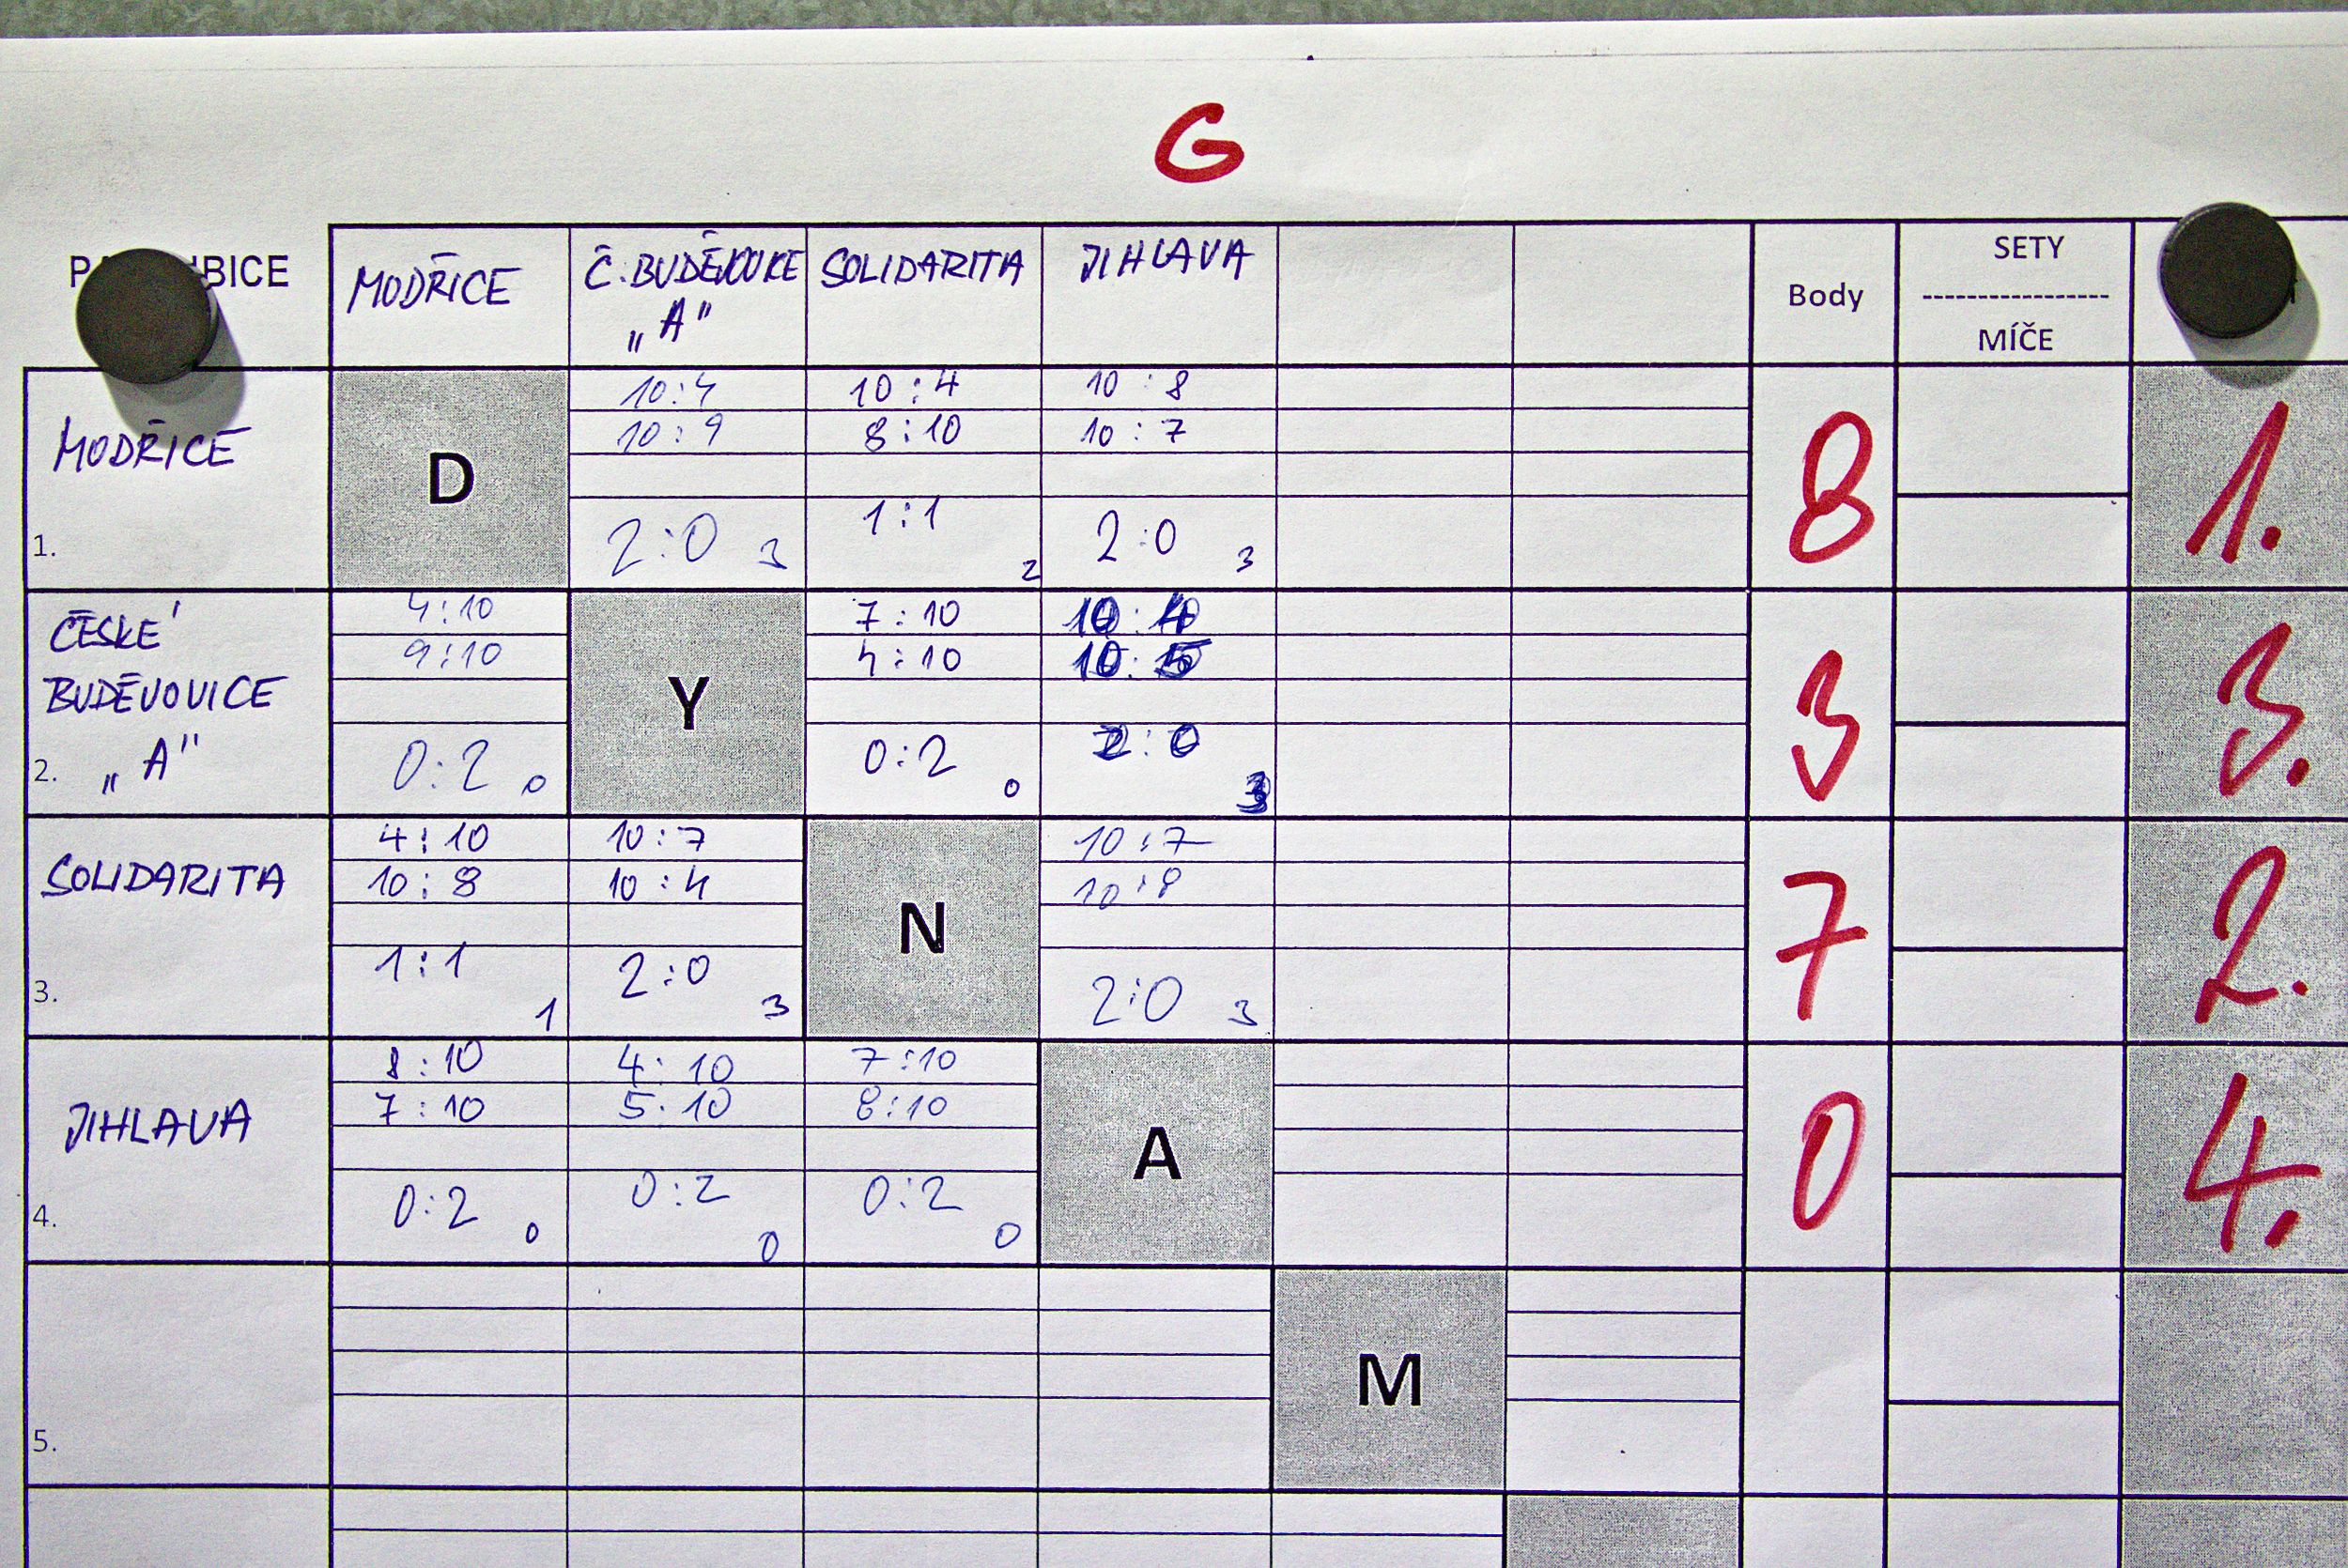 G
BICE
MODŘICE
Č. BUDĚJOVICE
„A"
SOLIDARITA
JIHLAVA
Body
SETY
MÍČE
MODŘICE
1.
D
10:4
10:9
2:0 3
10:4
8:10
1:1
2
10:8
10:7
2:0 3
8
1.
ČESKÉ
BUDĚJOVICE
„A"
2.
4:10
9:10
0:2 0
Y
7:10
4:10
0:2 0
10:4
10:5
2:0
3
3
3.
SOLIDARITA
3.
4:10
10:8
1:1
1
10:7
10:4
2:0
3
N
10:7
10:8
2:0 3
7
2.
JIHLAVA
4.
8:10
7:10
0:2 0
4:10
5:10
0:2
0
7:10
8:10
0:2
0
A
0
4.
5.
M